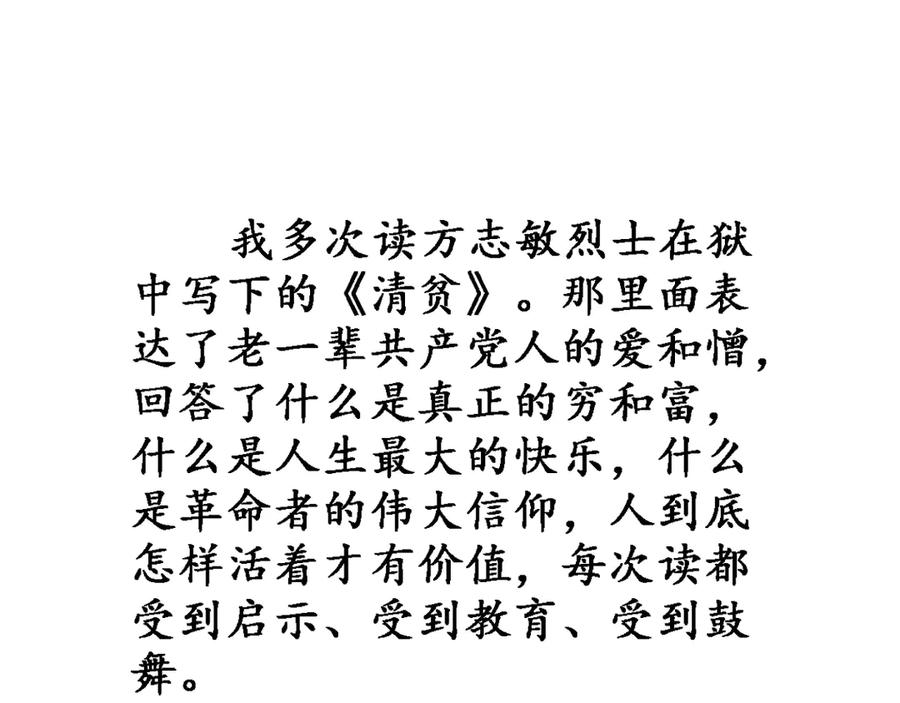 我多次读方志敏烈士在狱
中写下的《清贫》。那里面表
达了老一辈共产党人的爱和憎，
回答了什么是真正的穷和富，
什么是人生最大的快乐，什么
是革命者的伟大信仰，人到底
怎样活着才有价值，每次读都
受到启示、受到教育、受到鼓
舞。